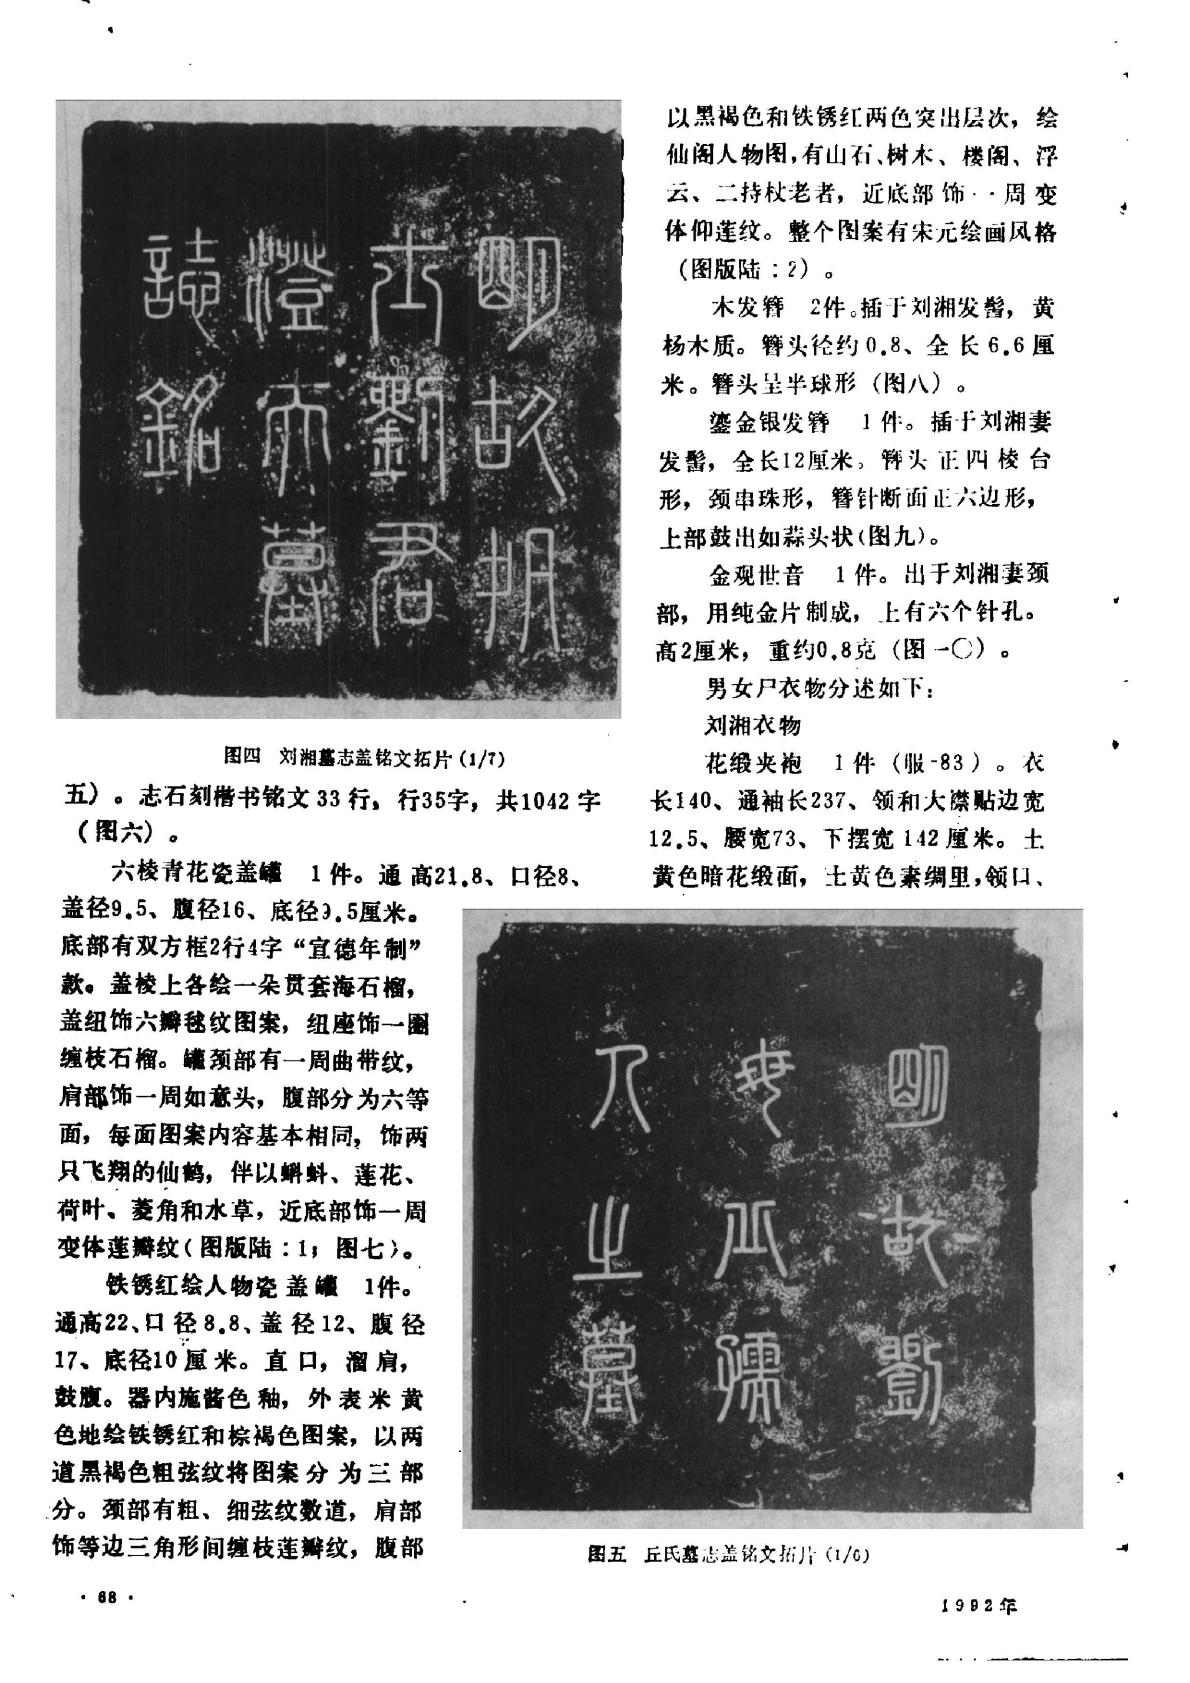 明故
士劉君
澄墓
誌銘
图四 刘湘墓志盖铭文拓片(1/7)
五）。志石刻楷书铭文33行，行35字，共1042字
（图六）。
六棱青花瓷盖罐 1件。通高21.8、口径8、
盖径9.5、腹径16、底径9.5厘米。
底部有双方框2行4字“宣德年制”
款。盖棱上各绘一朵贯套海石榴，
盖纽饰六瓣毬纹图案，纽座饰一圈
缠枝石榴。罐颈部有一周曲带纹，
肩部饰一周如意头，腹部分为六等
面，每面图案内容基本相同，饰两
只飞翔的仙鹤，伴以蝌蚪、莲花、
荷叶、菱角和水草，近底部饰一周
变体莲瓣纹（图版陆：1；图七）。
铁锈红绘人物瓷盖罐 1件。
通高22、口径8.8、盖径12、腹径
17、底径10厘米。直口，溜肩，
鼓腹。器内施酱色釉，外表米黄
色地绘铁锈红和棕褐色图案，以两
道黑褐色粗弦纹将图案分为三部
分。颈部有粗、细弦纹数道，肩部
饰等边三角形间缠枝莲瓣纹，腹部
以黑褐色和铁锈红两色突出层次，绘
仙阁人物图，有山石、树木、楼阁、浮
云、二持杖老者，近底部饰一周变
体仰莲纹。整个图案有宋元绘画风格
（图版陆：2）。
木发簪 2件。插于刘湘发髻，黄
杨木质。簪头径约0.8、全长6.6厘
米。簪头呈半球形（图八）。
鎏金银发簪 1件。插于刘湘妻
发髻，全长12厘米。簪头正四棱台
形，颈串珠形，簪针断面正六边形，
上部鼓出如蒜头状（图九）。
金观世音 1件。出于刘湘妻颈
部，用纯金片制成，上有六个针孔。
高2厘米，重约0.8克（图一〇）。
男女尸衣物分述如下：
刘湘衣物
花缎夹袍 1件（服-83）。衣
长140、通袖长237、领和大襟贴边宽
12.5、腰宽73、下摆宽142厘米。土
黄色暗花缎面，土黄色素绸里，领口、
明故劉
母丘孺
人之墓
图五 丘氏墓志盖铭文拓片(1/6)
·68·
1992年